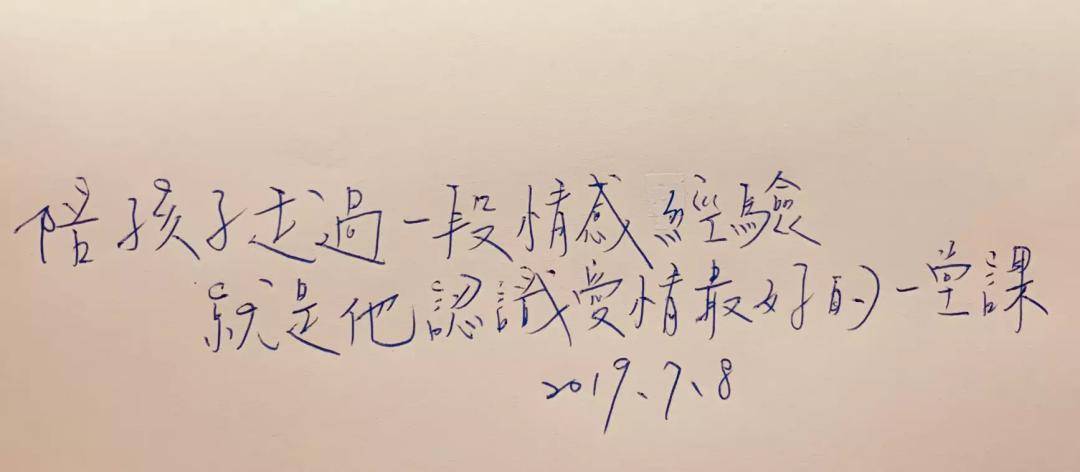 陪孩子走過一段情感經驗
就是他認識愛情最好的一堂課
2019、7、8